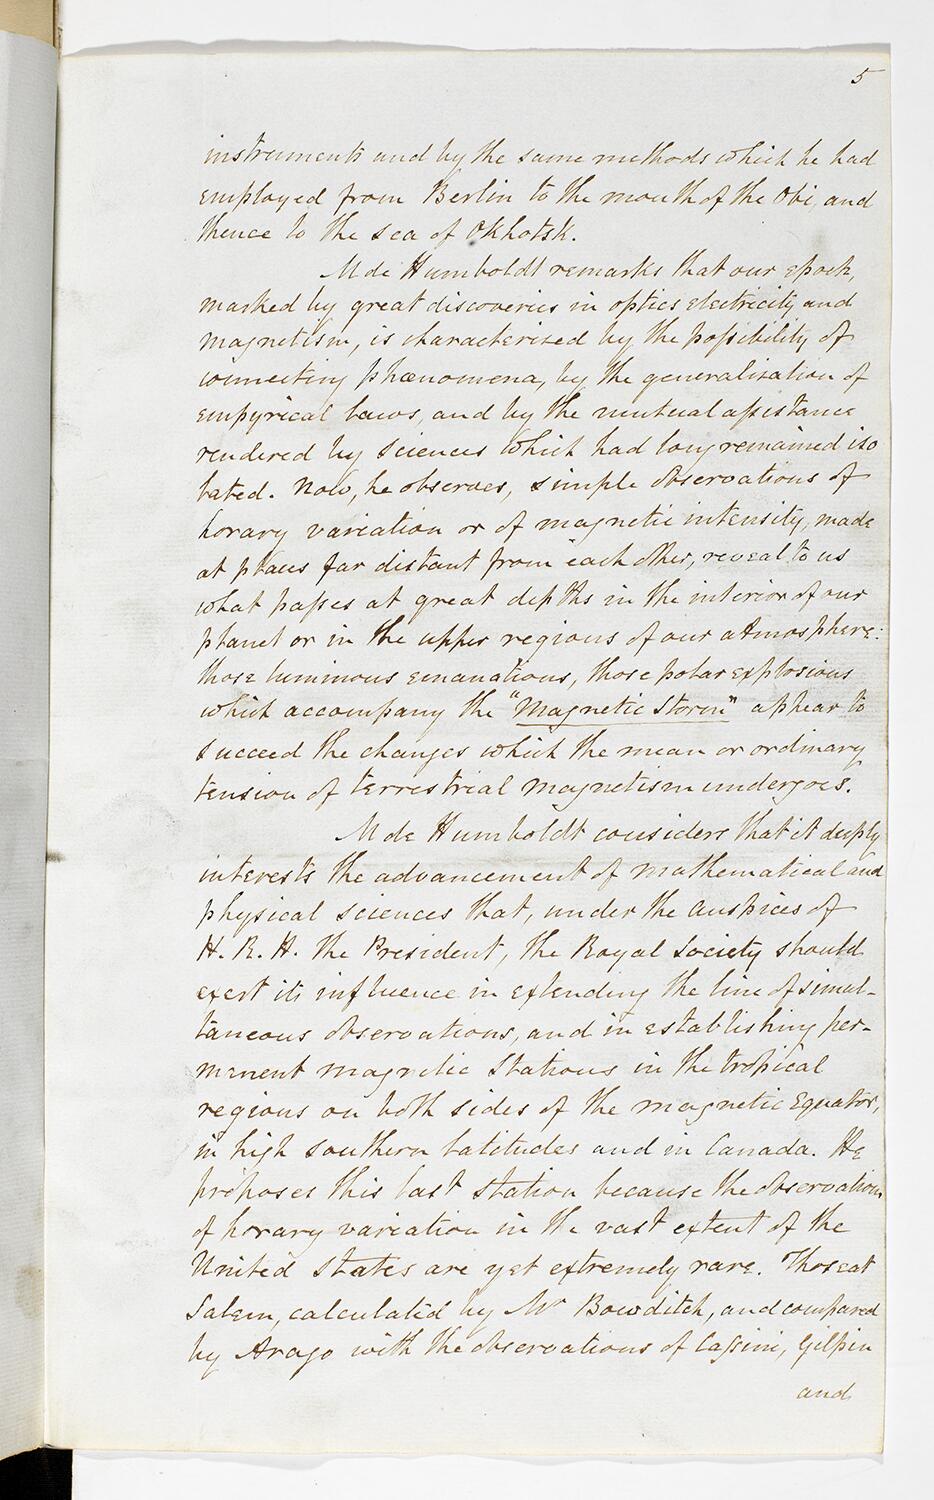 5
instruments and by the same methods which he had
employed from Berlin to the mouth of the Obi, and
thence to the sea of Okhotsk.
M de Humboldt remarks that our epoch,
marked by great discoveries in optics electricity and
magnetism, is characterized by the possibility of
connecting phœnomena, by the generalization of
empyrical laws, and by the mutual assistance
rendered by sciences which had long remained iso
lated. Now, he observes, simple observations of
horary variation or of magnetic intensity, made
at places far distant from each other, reveal to us
what passes at great depths in the interior of our
planet or in the upper regions of our atmosphere:
those luminous emanations, those polar explosions
which accompany the "Magnetic Storm" appear to
succeed the changes which the mean or ordinary
tension of terrestrial magnetism undergoes.
M de Humboldt considers that it deeply
interests the advancement of mathematical and
physical sciences that, under the auspices of
H. R. H. the President, the Royal Society should
exert its influence in extending the line of simul-
taneous observations, and in establishing per-
manent magnetic stations in the tropical
regions on both sides of the magnetic Equator,
in high southern latitudes and in Canada. He
proposes this last station because the observations
of horary variation in the vast extent of the
United States are yet extremely rare. Those at
Salem, calculated by Mr Bowditch, and compared
by Arago with the observations of Cassini, Gilpin
and